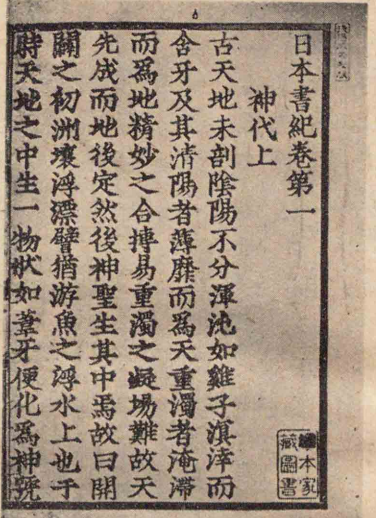 日本書紀卷第一
神代上
古天地未剖陰陽不分渾沌如雞子溟涬而
含牙及其清陽者薄靡而爲天重濁者淹滯
而爲地精妙之合摶易重濁之凝場難故天
先成而地後定然後神聖生其中焉故曰開
闢之初洲壤浮漂譬猶游魚之浮水上也于
時天地之中生一物狀如葦牙便化爲神號
本家
藏圖書